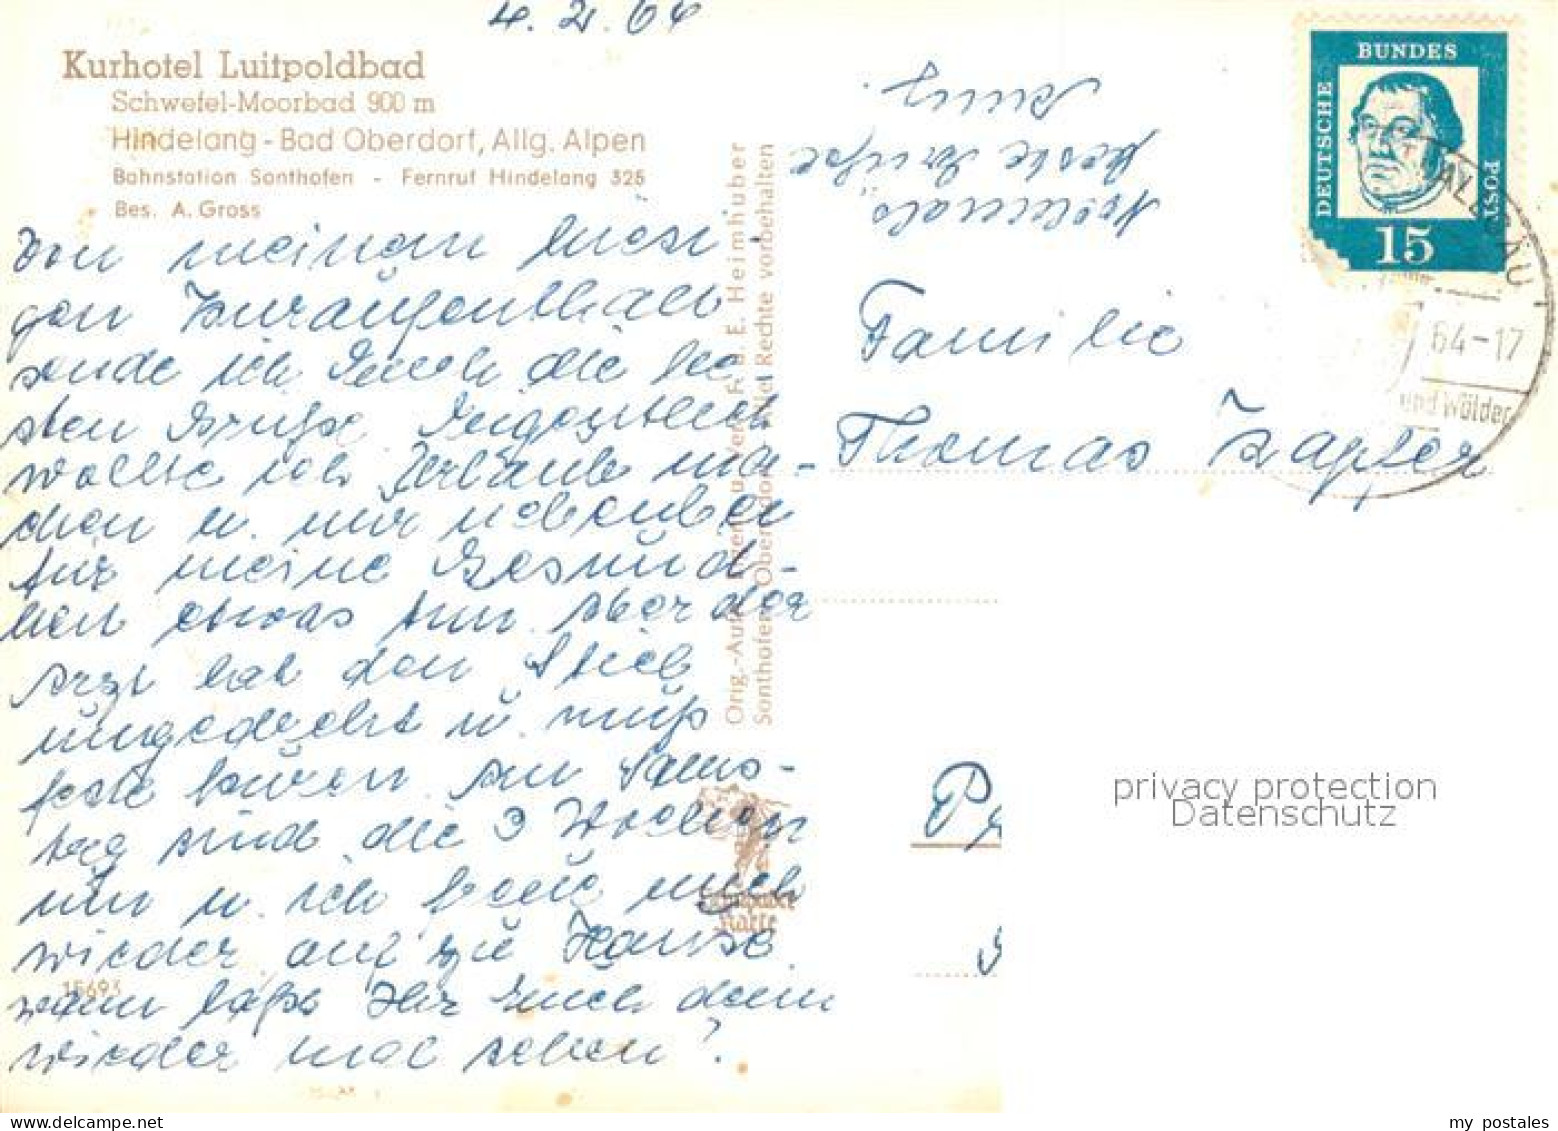 4.2.64
Kurhotel Luitpoldbad
Schwefel-Moorbad 900 m
Hindelang - Bad Oberdorf, Allg. Alpen
Bahnstation Sonthofen - Fernruf Hindelang 325
Bes. A. Gross
Von meinem hiesi-
gen Kuraufenthalt
sende ich Euch die be
sten Grüße. Eigentlich
wollte ich Urlaub ma-
chen u. nur nebenbei
für meine Gesund-
heit etwas tun. Aber der
Arzt hat den Stiel
umgedreht u. muß
feste kuren. Am Sams-
tag sind die 3 Wochen
um u. ich freue mich
wieder auf zu Hause.
wann laßt Ihr Euch denn
wieder mal sehen?
15693
Orig.-Aufn. Eigentum u. Verl. F. u. E. Heimhuber
Sonthofen-Oberstdorf Alle Rechte vorbehalten
Heimhuber
Karte
Nochmals
beste Grüße
DEUTSCHE
BUNDES
POST
15
ALLGÄU
64-17
und Wälder
Familie
Thomas Zapfer
privacy protection
Datenschutz
my postales